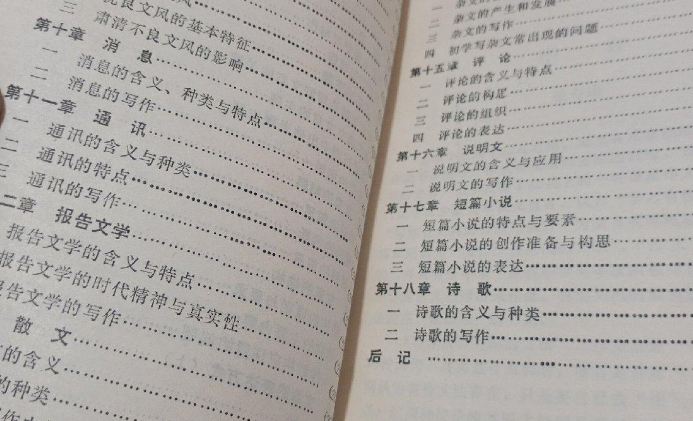 三 肃清不良文风的影响
第十章 消 息
一 消息的含义、种类与特点
二 消息的写作
第十一章 通 讯
一 通讯的含义与种类
二 通讯的特点
三 通讯的写作
二章 报告文学
报告文学的含义与特点
报告文学的时代精神与真实性
报告文学的写作
散 文
的含义
的种类
二 杂文的产生和发展
三 杂文的写作
四 初学写杂文常出现的问题
第十五章 评 论
一 评论的含义与特点
二 评论的构思
三 评论的组织
四 评论的表达
第十六章 说明文
一 说明文的含义与应用
二 说明文的写作
第十七章 短篇小说
一 短篇小说的特点与要素
二 短篇小说的创作准备与构思
三 短篇小说的表达
第十八章 诗 歌
一 诗歌的含义与种类
二 诗歌的写作
后 记